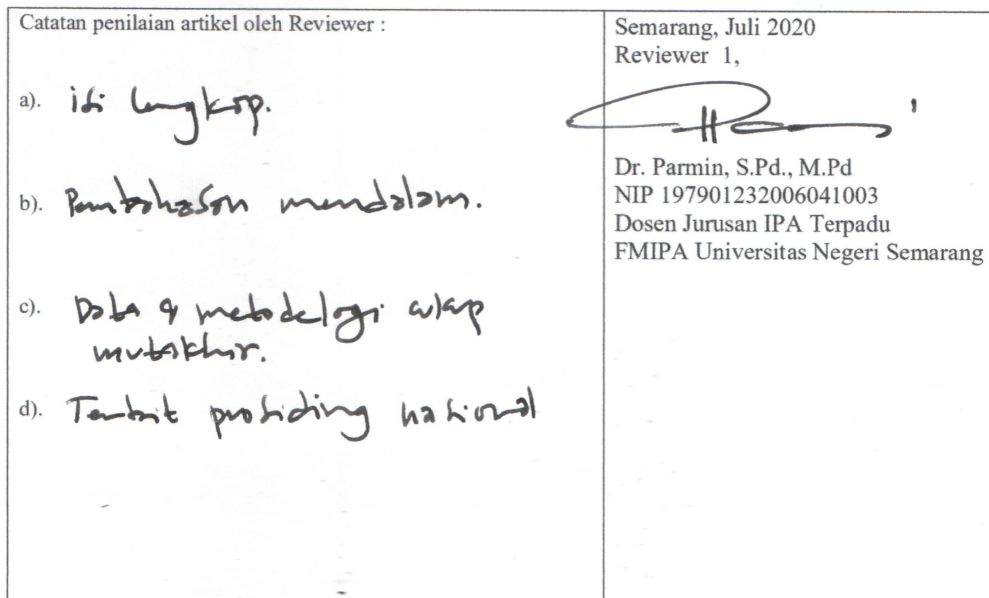 Catatan penilaian artikel oleh Reviewer :
a). isi lengkap.
b). Pembahasan mendalam.
c). Data & metodelogi cukup
mutakhir.
d). Terbit prosiding nasional
Semarang, Juli 2020
Reviewer 1,
Dr. Parmin, S.Pd., M.Pd
NIP 197901232006041003
Dosen Jurusan IPA Terpadu
FMIPA Universitas Negeri Semarang